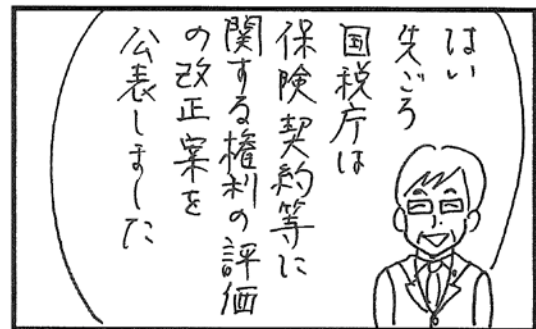 はい
先ごろ
国税庁は
保険契約等に
関する権利の評価
の改正案を
公表しました